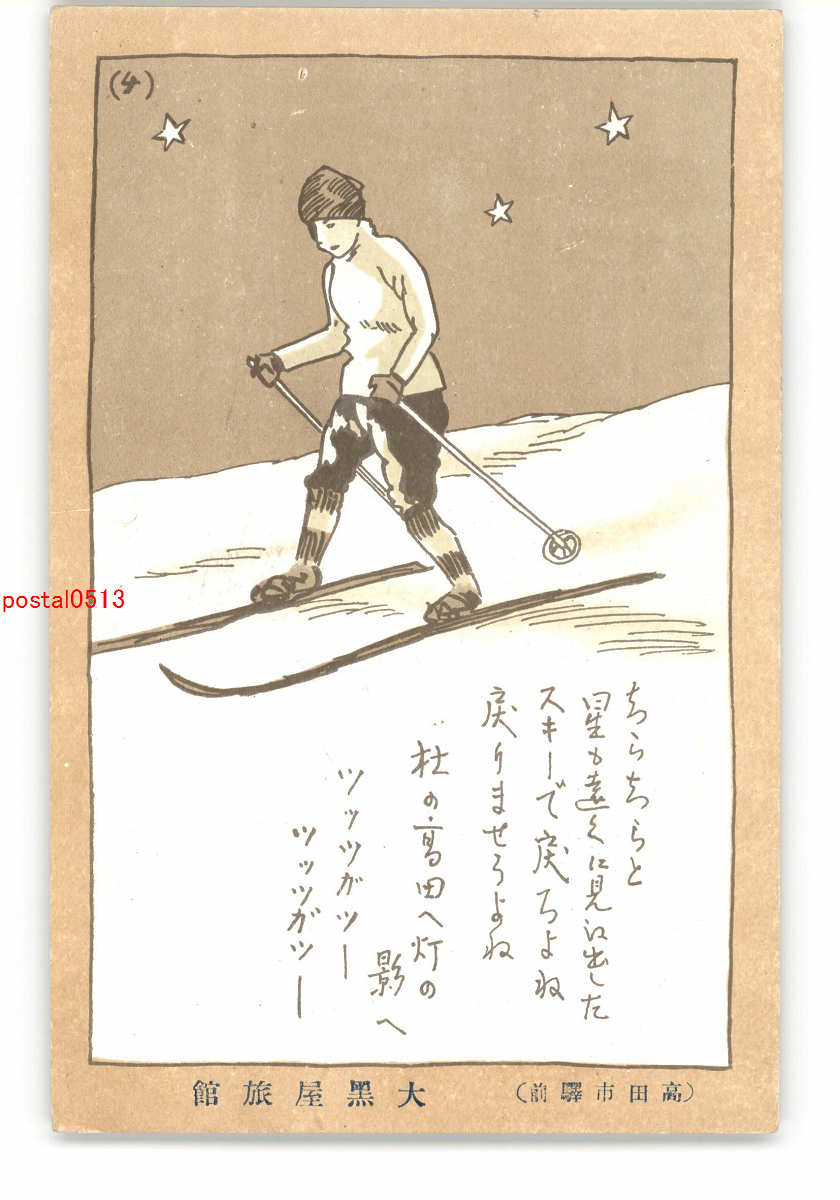 (4)
ちらちらと
星も遠くに見え出した
スキーで戻ろよね
戻りませうよね
杜の高田へ灯の
影へ
ツッツガツー
ツッツガツー
(高田市驛前)
大黑屋旅館
postal0513